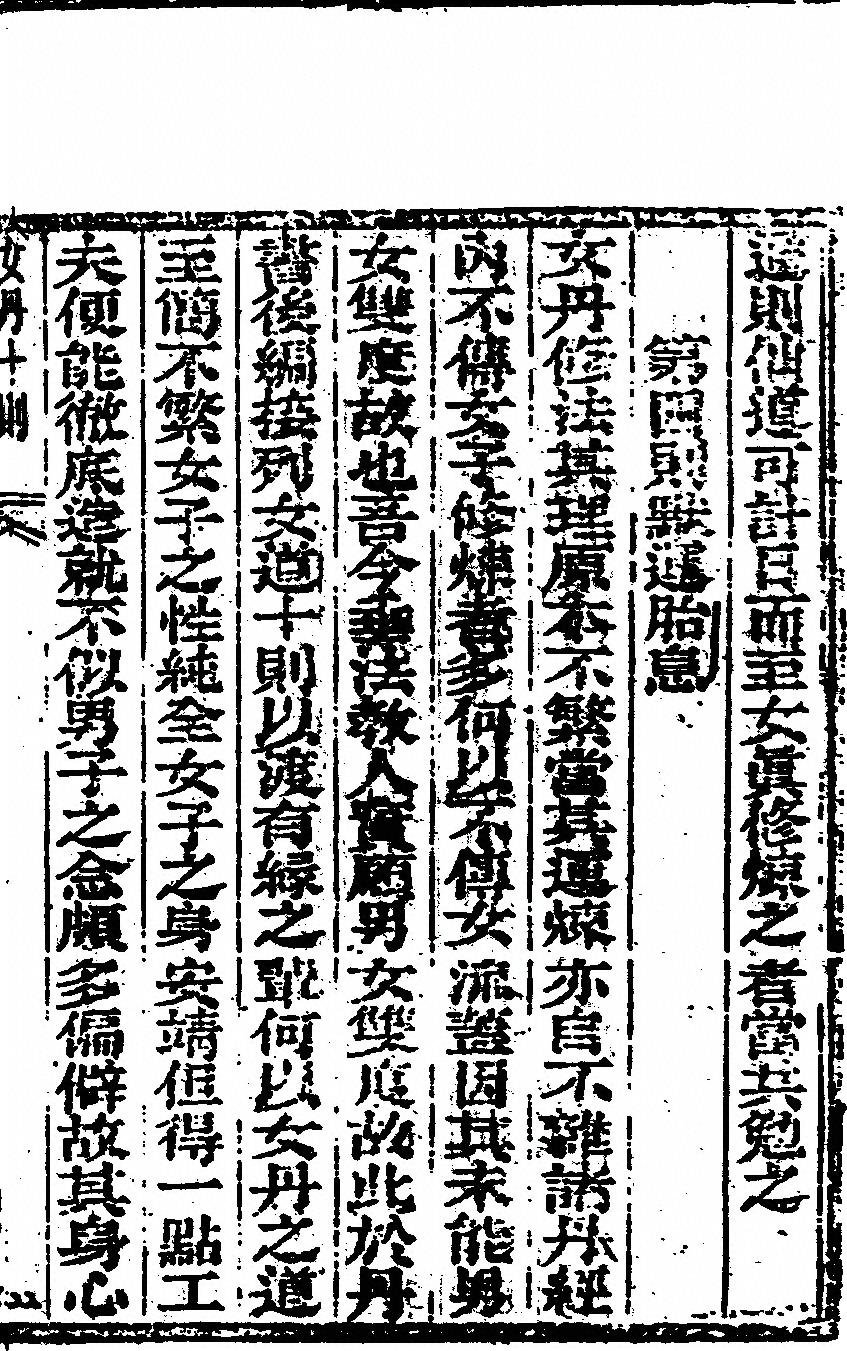 進則仙道可計日而至女眞修煉之者當共勉之
第四則輕運胎息
女丹修法其理原本不繁當其運煉亦自不雜諸丹經
內不傳女子修煉者多何以不傳女流蓋因其未能男
女雙度故也吾今垂法教人實願男女雙度故此於丹
後編接列女道十則以渡有緣之輩何以女丹之道
至簡不繁女子之性純全女子之身安靖但得一點工
夫便能徹底造就不似男子之念頗多偏僻故其身心
女丹十則